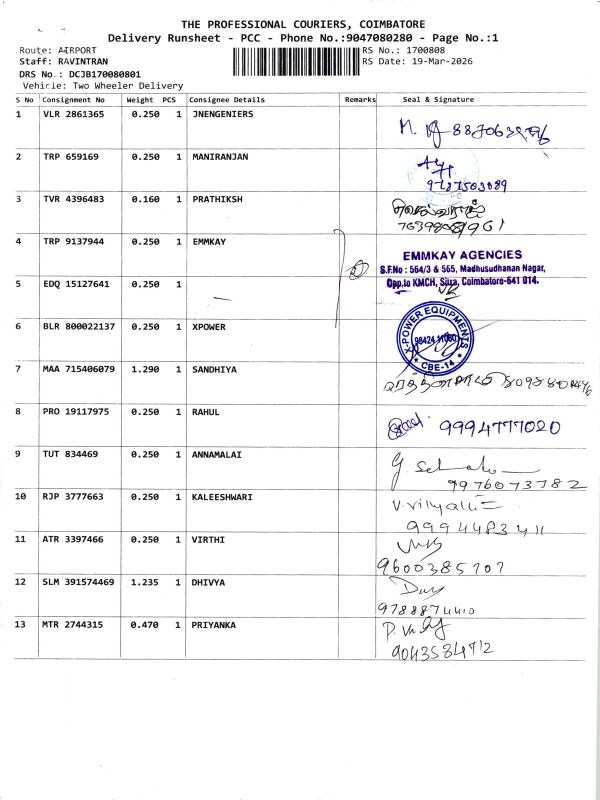 THE PROFESSIONAL COURIERS, COIMBATORE
Delivery Runsheet - PCC - Phone No.:9047080280 - Page No.:1
Route: AIRPORT
RS No.: 1700808
Staff: RAVINTRAN
RS Date: 19-Mar-2026
DRS No.: DCJB170080801
Vehicle: Two Wheeler Delivery
S No Consignment No Weight PCS Consignee Details Remarks Seal & Signature
1 VLR 2861365 0.250 1 JNENGENIERS
2 TRP 659169 0.250 1 MANIRANJAN
3 TVR 4396483 0.160 1 PRATHIKSH
4 TRP 9137944 0.250 1 EMMKAY
EMMKAY AGENCIES
S.F.No : 564/3 & 565, Madhusudhanan Nagar,
Opp.to KMCH, Sitra, Coimbatore-641 014.
5 EDQ 15127641 0.250 1
6 BLR 800022137 0.250 1 XPOWER
X-POWER EQUIPMENTS
* CBE-14 *
7 MAA 715406079 1.290 1 SANDHIYA
8 PRO 19117975 0.250 1 RAHUL
9994777020
9 TUT 834469 0.250 1 ANNAMALAI
9976073782
10 RJP 3777663 0.250 1 KALEESHWARI
9994483411
11 ATR 3397466 0.250 1 VIRTHI
9600385707
12 SLM 391574469 1.235 1 DHIVYA
9788874410
13 MTR 2744315 0.470 1 PRIYANKA
9043584712